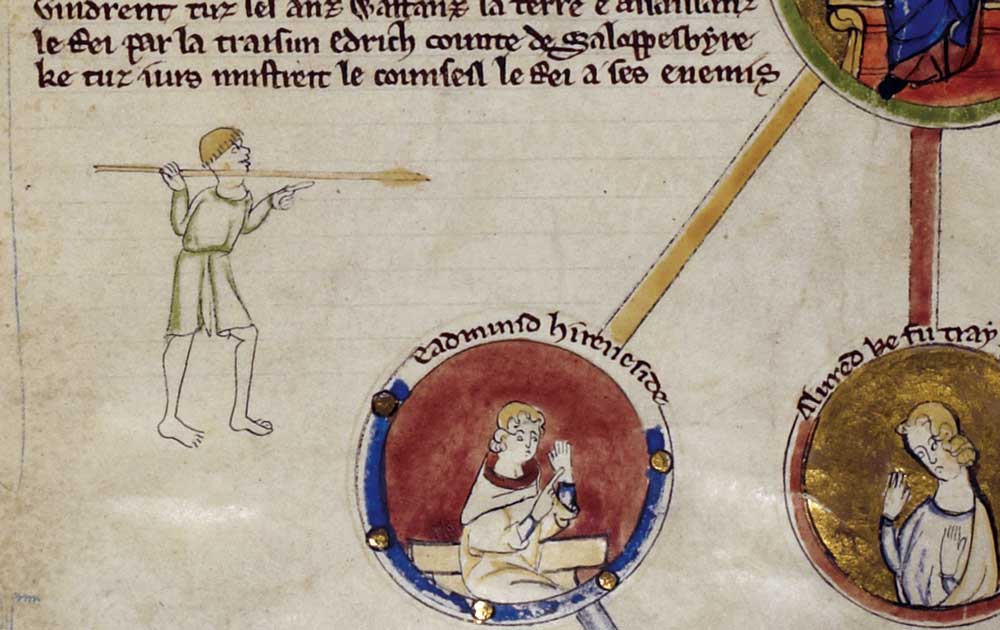 Vindrent tuz les anz Gastanz la terre e assaillanz
le Rei par la traisun Edrich counte de Saloppesbyre
ke tuz iurs mustreit le counseil le Rei a ses enemis
eadmund hireneside
Alured ke fu tray